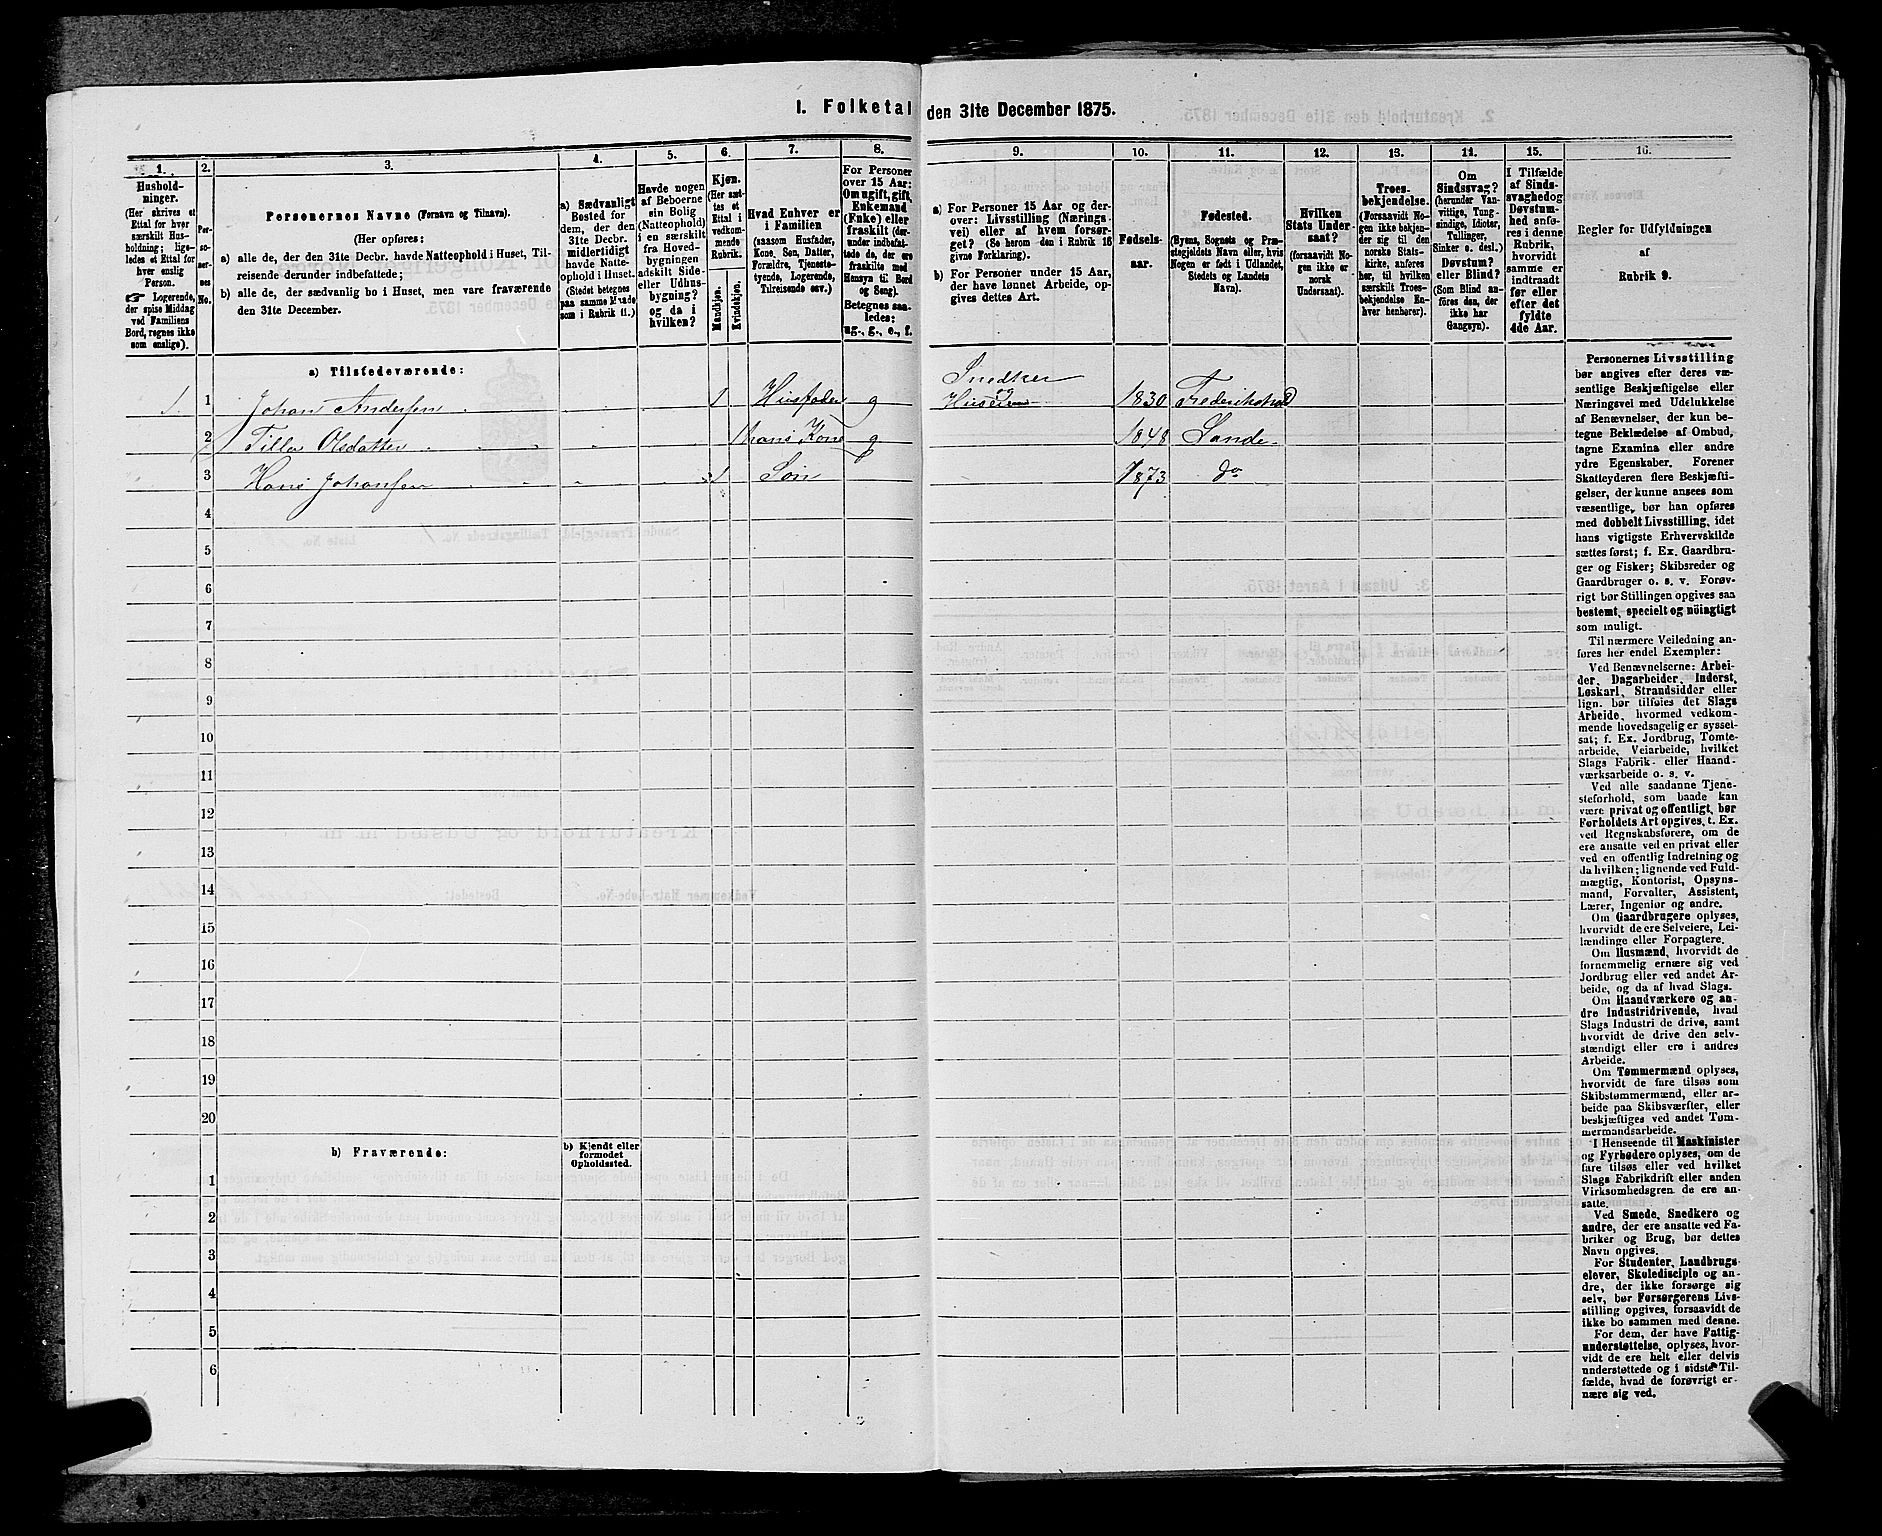 1. Folketal den 31te December 1875.
1.
Hushold-
ninger.
(Her skrives et
Ettal for hver
særskilt Hus-
holdning; lige-
ledes et Ettal for
hver enslig
Person.
Logerende,
der spise Middag
ved Familiens
Bord, regnes ikke
som enslige).
2.
Per-
so-
ner-
nes
No.
3.
Personernes Navne (Fornavn og Tilnavn).
(Her opføres:
a) alle de, der den 31te Decbr. havde Natteophold i Huset, Til-
reisende derunder indbefattede;
b) alle de, der sædvanlig bo i Huset, men vare fraværende
den 31te December.
4.
a) Sædvanligt
Bosted for
dem, der den
31te Decbr.
midlertidigt
havde Natte-
ophold i Huset.
(Stedet betegnes
paa samme Maade
som i Rubrik 11.)
5.
Havde nogen
af Beboerne
sin Bolig
(Natteophold)
i en særskilt
fra Hoved-
bygningen
adskilt Side-
eller Udhus-
bygning?
og da i
hvilken?
6.
Kjøn.
(Her sæt-
tes et
Ettal i
vedkom-
mende
Rubrik.
Mandkjøn.
Kvindekjøn.
7.
Hvad Enhver er
i Familien
(saasom Husfader,
Kone, Søn, Datter,
Forældre, Tjeneste-
tyende, Logerende,
Tilreisende osv.)
8.
For Personer
over 15 Aar:
Om ugift, gift,
Enkemand
(Enke) eller
fraskilt (der-
under indbefat-
tede de, der ere
fraskilte med
Hensyn til Bord
og Seng).
Betegnes saa-
ledes:
ug., g., e., f.
9.
a) For Personer 15 Aar og der-
over: Livsstilling (Nærings-
vei) eller af hvem forsør-
get? (Se herom den i Rubrik 16
givne Forklaring).
b) For Personer under 15 Aar,
der have lønnet Arbeide, op-
gives dettes Art.
10.
Fødsels-
aar.
11.
Fødested.
(Byens, Sognets og Præ-
stegjeldets Navn eller, hvis
Nogen er født i Udlandet,
Stedets og Landets
Navn).
12.
Hvilken
Stats Under-
saat?
(forsaavidt No-
gen ikke er
norsk
Undersaat).
13.
Troes-
bekjendelse.
(Forsaavidt No-
gen ikke bekjen-
der sig til den
norske Stats-
kirke, anføres
her, til hvilken
særskilt Troes-
bekjendelse En-
hver henhører).
14.
Om
Sindssvag?
(herunder Van-
vittige, Tung-
sindige, Idioter,
Tullinger,
Sinker o. desl.)
Døvstum?
eller Blind?
(Som Blind an-
føres den, der
ikke har
Gangsyn).
15.
I Tilfælde
af Sinds-
svaghed og
Døvstum-
hed anfø-
res i denne
Rubrik,
hvorvidt
samme er
indtraadt
før eller
efter det
fyldte
4de Aar.
16.
Regler for Udfyldningen
af
Rubrik 9.
a) Tilstedeværende:
1 1 Johan Andersen 1 Husfader g Snedker og 1830 Frederikshald
2 Tilla Olsdatter 1 hans Kone g 1848 Sande
3 Hans Johansen 1 Søn 1873 do
4
5
6
7
8
9
10
11
12
13
14
15
16
17
18
19
20
b) Fraværende:
b) Kjendt eller
formodet
Opholdssted.
1
2
3
4
5
6
Personernes Livsstilling
bør angives efter deres væ-
sentlige Beskjæftigelse eller
Næringsvei med Udelukkelse
af Benævnelser, der kun be-
tegne Beklædelse af Ombud,
tagne Examina eller andre
ydre Egenskaber. Forener
Skatteyderen flere Beskjæfti-
gelser, der kunne ansees som
væsentlige, bør han opføres
med dobbelt Livsstilling, idet
hans vigtigste Erhvervskilde
sættes først; f. Ex. Gaardbru-
ger og Fisker; Skibsreder og
Gaardbruger o. s. v. Forøv-
rigt bør Stillingen opgives saa
bestemt, specielt og nöiagtigt
som muligt.
Til nærmere Veiledning an-
føres her endel Exempler:
Ved Benævnelserne: Arbei-
der, Dagarbeider, Inderst,
Løskarl, Strandsidder eller
lign. bør tilføies det Slags
Arbeide, hvormed vedkom-
mende hovedsagelig er syssel-
sat; f. Ex. Jordbrug, Tomte-
arbeide, Veiarbeide, hvilket
Slags Fabrik- eller Haand-
værksarbeide o. s. v.
Ved alle saadanne Tjene-
steforhold, som baade kan
være privat og offentligt, bør
Forholdets Art opgives, t. Ex.
ved Regnskabsførere, om de
ere ansatte ved en privat eller
ved en offentlig Indretning og
da hvilken; lignende ved Fuld-
mægtig, Kontorist, Opsyns-
mand, Forvalter, Assistent,
Lærer, Ingeniør og andre.
Om Gaardbrugere oplyses,
hvorvidt de ere Selveiere, Lei-
lændinge eller Forpagtere.
Om Husmænd, hvorvidt de
fornemmelig ernære sig ved
Jordbrug eller ved andet Ar-
beide, og da af hvad Slags.
Om Haandværkere og an-
dre Industridrivende, hvad
Slags Industri de drive, samt
hvorvidt de drive den selv-
stændigt eller ere i andres
Arbeide.
Om Tømmermænd oplyses,
hvorvidt de fare tilsøs som
Skibstømmermænd, eller ar-
beide paa Skibsværfter, eller
beskjæftiges ved andet Tøm-
mermandsarbeide.
I Henseende til Maskinister
og Fyrbødere oplyses, om de
fare tilsøs eller ved hvilket
Slags Fabrikdrift eller anden
Virksomhedsgren de ere an-
satte.
Ved Smede, Snedkere og
andre, der ere ansatte ved Fa-
briker og Brug, bør dettes
Navn opgives.
For Studenter, Landbrugs-
elever, Skoledisciple og an-
dre, der ikke forsørge sig
selv, bør Forsørgerens Livs-
stilling opgives, forsaavidt de
ikke bo sammen med denne.
For dem, der have Fattig-
understøttelse, oplyses, hvor-
vidt de ere helt eller delvis
understøttede og i sidste Til-
fælde, hvad de forøvrigt er-
nære sig ved.